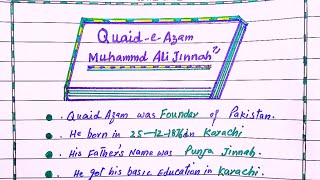 Quaid-e-Azam
Muhammd Ali Jinnah
Quaid Azam was Founder of Pakistan.
He born in 25-12-1876 in Karachi
His Father's Name was Punja Jinnah.
He got his basic Education in Karachi.